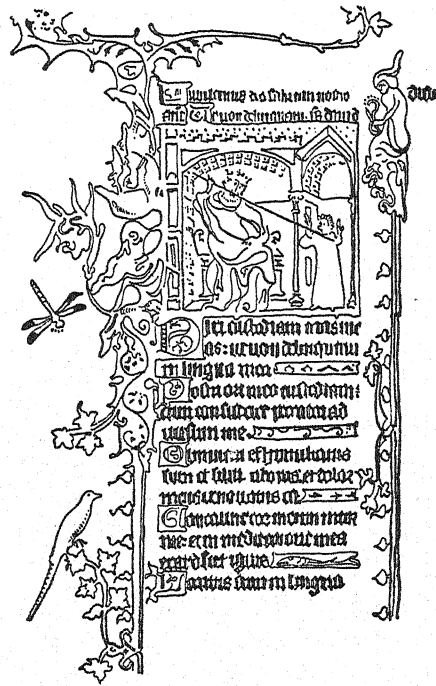 deo salutari nostro
Ut non delinquam
Dixi custodiam vias me
as: ut non delinquam
in lingua mea
Posui ori meo custodiam:
cum consisteret peccator ad
versum me
et humiliatus
sum et silui a bonis: et dolor
meus renovatus est
Concaluit cor meum intra
me: et in meditatione mea
exardescet ignis
Locutus sum in lingua